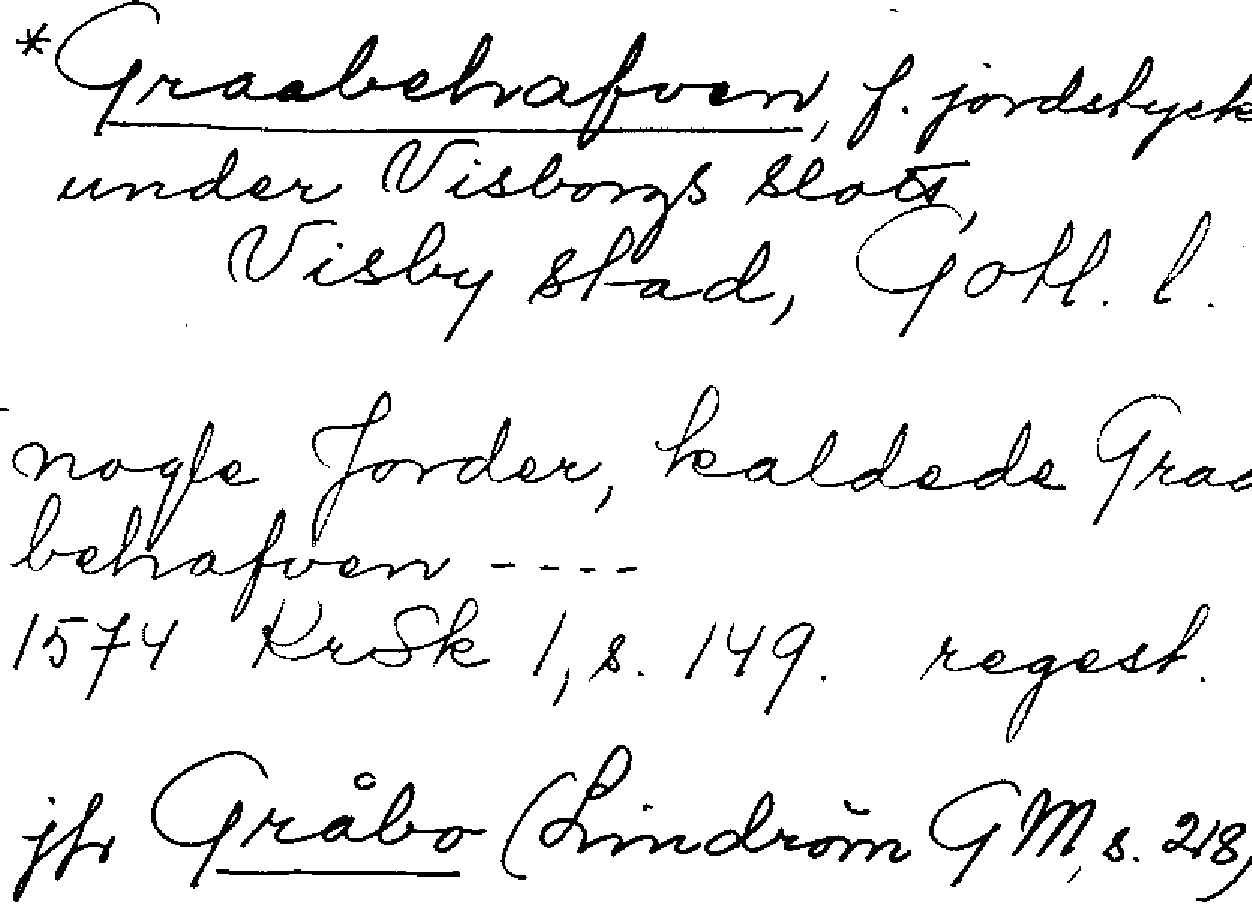 *Graabehafven, f. jordstyck
under Visborgs slott,
Visby stad, Gotl. l.
nogle Jorder, kaldede Graa
behafven ----
1574 KrSk 1, s. 149. regest.
jfr Gråbo (Lindröm GM, s. 218)